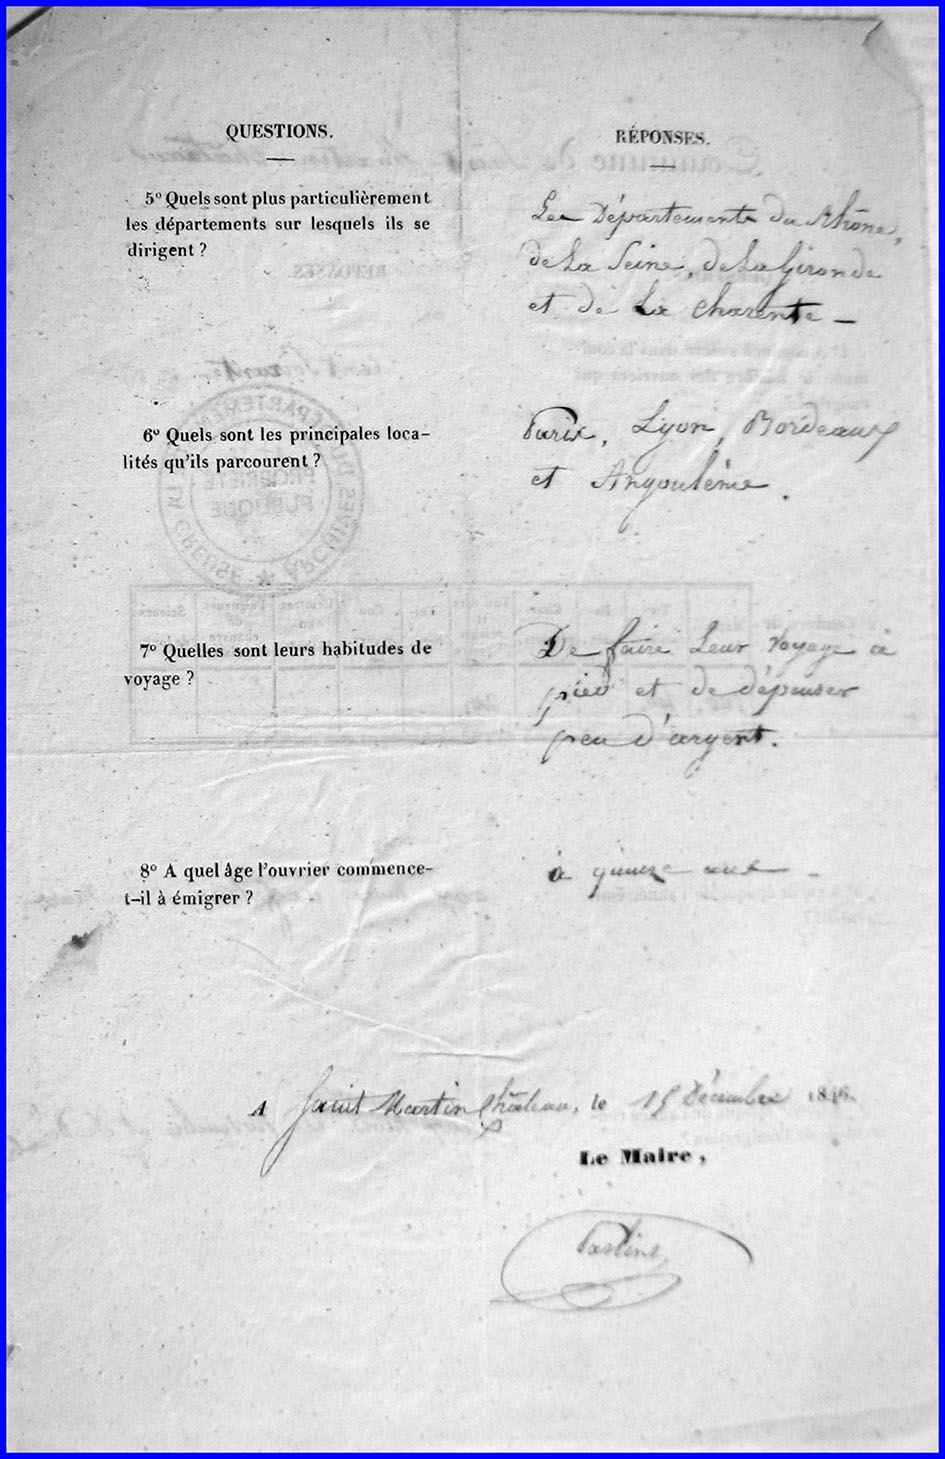 QUESTIONS.
RÉPONSES.
5º Quels sont plus particulièrement
les départements sur lesquels ils se
dirigent ?
Les Départements du Rhône,
de La Seine, de La Gironde
et de La Charente –
6º Quels sont les principales loca-
lités qu'ils parcourent ?
Paris, Lyon, Bordeaux
et Angoulême .
7º Quelles sont leurs habitudes de
voyage ?
De faire Leur voyage à
pied et de dépenser
peu d'argent.
8º A quel âge l'ouvrier commence-
t-il à émigrer ?
à quinze ans –
A Saint Martin Château, le 15 Décembre 1846.
Le Maire,